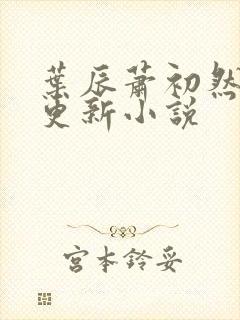 葉辰蕭初然
更新小說
宮本鈴妥